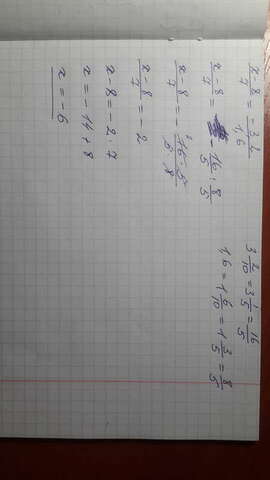 x-8/7 = -3,2/1,6
x-8/7 = -16/5 : 8/5
x-8/7 = - 16·5/5·8
x-8/7 = -2
x-8 = -2·7
x = -14+8
x = -6
3 2/10 = 3 1/5 = 16/5
1 6 = 1 6/10 = 1 3/5 = 8/5